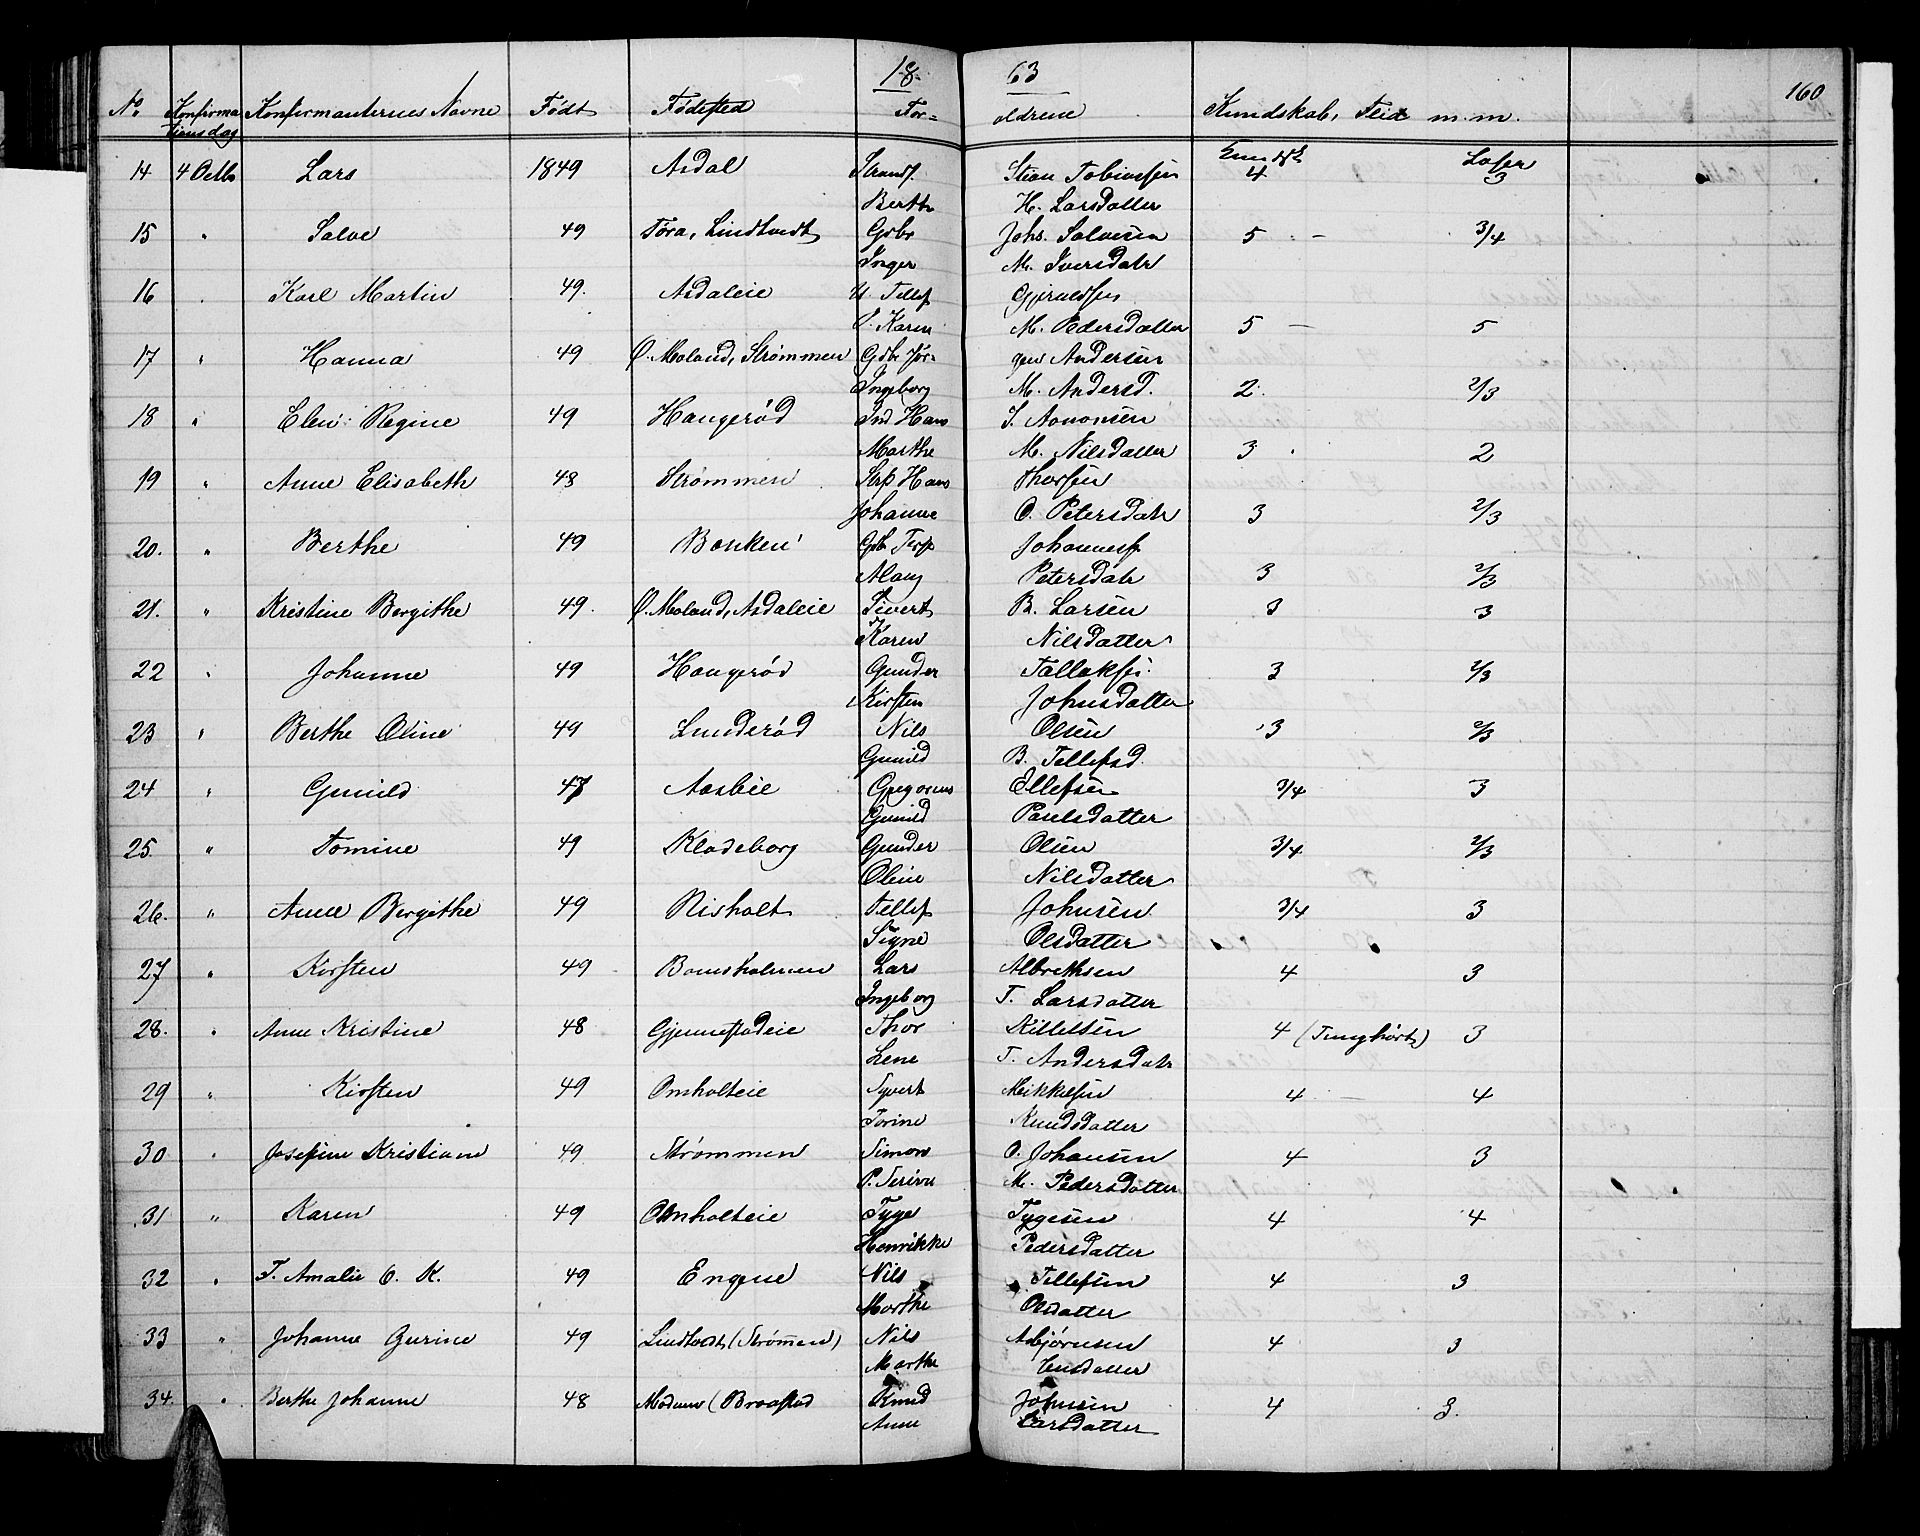 18 63
160
No Konfirma Konfirmanternes Navne Født Fødested For= ældrene Kundskab, Flid m.m.
tionsdag
Kundsk Læser
14 4 Octb Lars 1849 Asdal Strandf. Stian Tobiassen 4 3
Berthe H. Larsdatter
15 " Salve 49 Føra, Lindtvedt Gdbr Johs. Salvesen 5 - 3/4
Inger M. Iversdatr
16 " Karl Martin 49. Asdaleie Tellef Gjeruldsen
P. Karen M. Pedersdatter 5 — 5
17 " Hanna 49 Ø. Moland, Strømmen Gdbr Jør= gen Andersen
Ingeborg M. Andersd. 2. 2/3
18 " Elen Regine 49 Haugerød Ind Hans J. Aanonsen
Marthe M. Nilsdatter 3 2
19 " Anne Elisabeth 48 Strømmen Hans Thorsen
Johanne O. Petersdatr 3 2/3
20. " Berthe 49 Gdb Johannesf
Petersdatr 3 2/3
21. " Kristine Bergithe 49. Ø. Moland, Asdaleie Sivert B. Larsen 3 3
Karen Nilsdatter
22 " Johanne 49 Haugerød Gunder Tallaksen 3 2/3
Kirsten Johnsdatter
23 " Berthe Oline 49 Lunderød Nils Olsen 3 2/3
Gunild B. Tellefsd.
24 " Gunild 47 Aasbie Gregorius Ellefsen 3/4 3
Gunild Paulsdatter
25. " Tomine 49 Klodeborg Gunder Olsen 3/4 2/3
Oline Nilsdatter
26. " Anne Bergithe 49 Risholt Tellef Johnsen 3/4 3
Signe Olsdatter
27 " Kirsten 49 Bomsholmen Lars Albrethsen 4 3
Ingeborg T. Larsdatter
28. " Anne Kristine 48 Gjennestadeie Thor Kittelsen 4 (Tunghørt) 3
Lene T. Andersdatr
29 " Kirsten 49 Omholteie Syvert Mikkelsen 4 — 4
Torine Knudsdatter
30 " Josefine Kristiane 49 Strømmen Simon O. Johansen 4 3
P. Serine M. Pedersdatter
31 " Karen 49 Omholteie Tyge Tygesen 4 4
Henrikke Pedersdatter
32 " T. Amalie O. K. 49 Engene Nils Tellefsen 4 3
Marthe Olsdatter
33 " Johanne Gurine 49 Lindtvedt (Strømmen) Nils Asbjørnsen 4 3
Marthe Jensdatter
34. " Berthe Johanne 48 (Braastad Knud Johnsen 4 3.
Anne Larsdatter